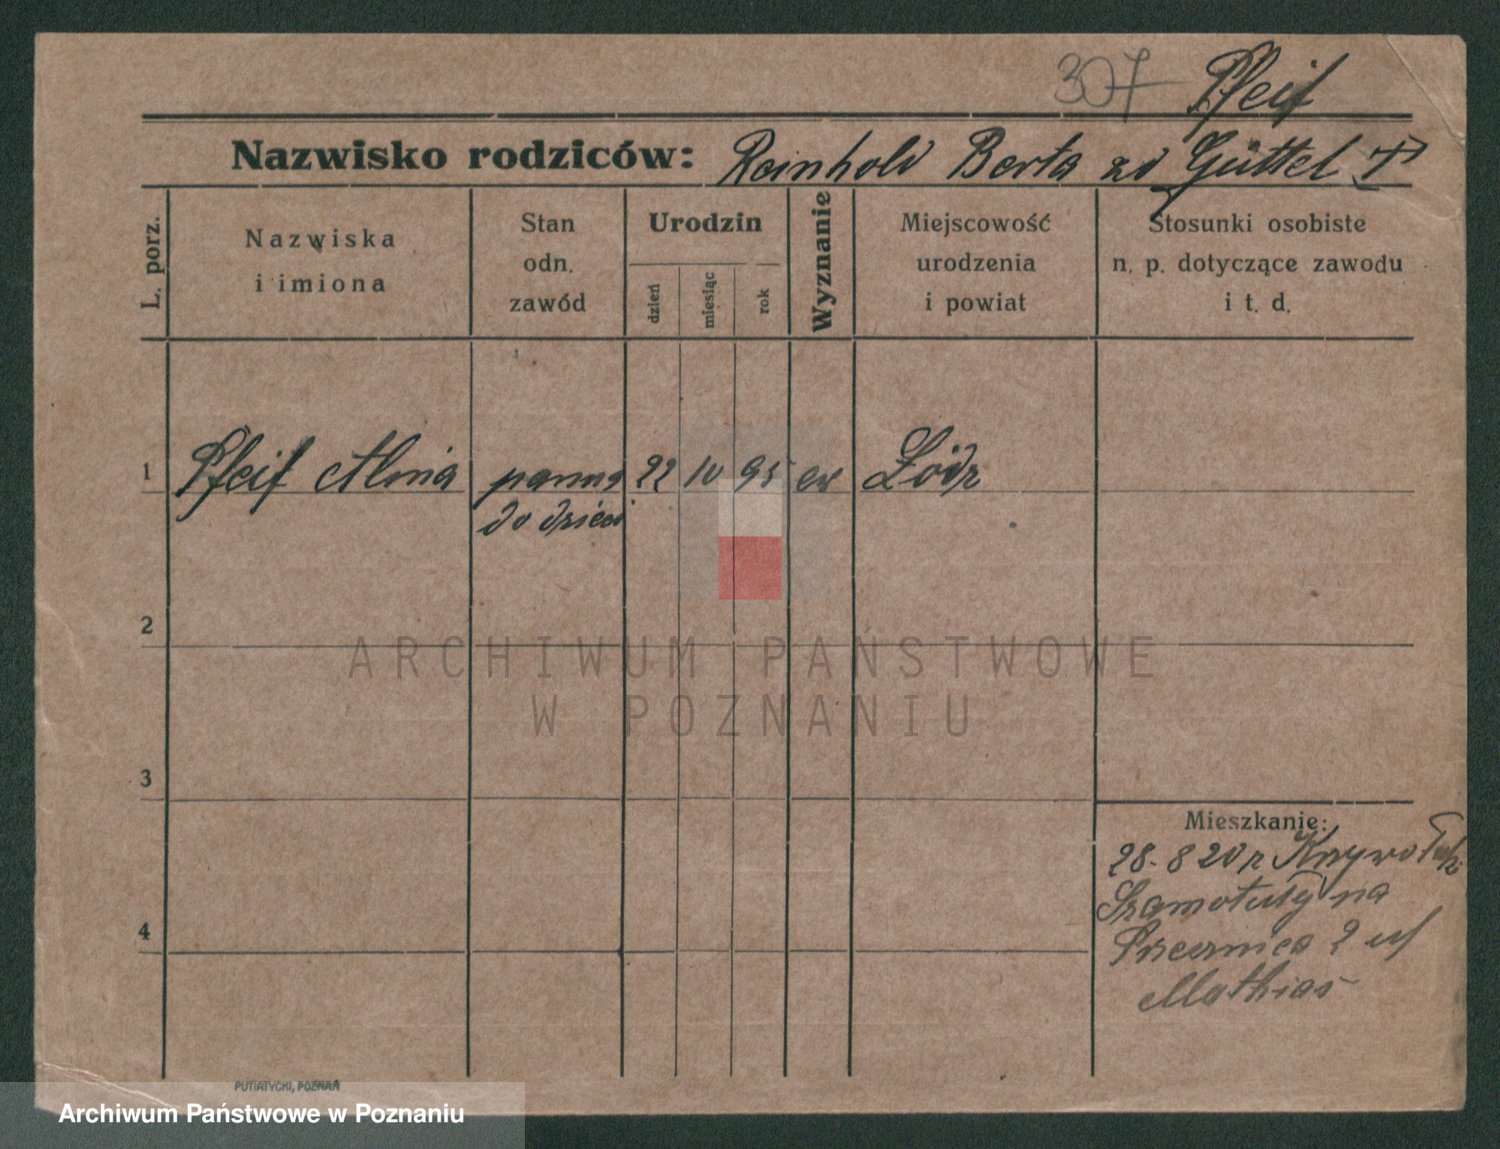 307 Pfeif
Nazwisko rodziców: Reinhold Berta zd Güttel
L. porz.
Nazwiska
i imiona
Stan
odn.
zawód
Urodzin
dzień
miesiąc
rok
Wyznanie
Miejscowość
urodzenia
i powiat
Stosunki osobiste
n. p. dotyczące zawodu
i t. d.
1 Pfeif Alma panna 22 10 95 ew Łódz
do dzieci
2
ARCHIWUM PAŃSTWOWE
W POZNANIU
3
Mieszkanie:
28-8 20 r
4
Szamotuły na
2 u/
Mathias
PUTIATYCKI, POZNAŃ
Archiwum Państwowe w Poznaniu